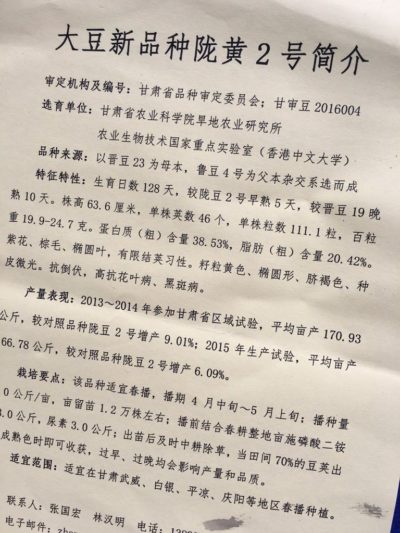 大豆新品种陇黄2号简介
审定机构及编号：甘肃省品种审定委员会；甘审豆 2016004
选育单位：甘肃省农业科学院旱地农业研究所
农业生物技术国家重点实验室（香港中文大学）
品种来源：以晋豆 23 为母本，鲁豆 4 号为父本杂交系选而成
特征特性：生育日数 128 天，较陇豆 2 号早熟 5 天，较晋豆 19 晚
熟 10 天。株高 63.6 厘米，单株荚数 46 个，单株粒数 111.1 粒，百粒
重 19.9-24.7 克。蛋白质（粗）含量 38.53%，脂肪（粗）含量 20.42%。
紫花、棕毛、椭圆叶，有限结荚习性。籽粒黄色、椭圆形、脐褐色、种
皮微光。抗倒伏，高抗花叶病、黑斑病。
产量表现：2013~2014 年参加甘肃省区域试验，平均亩产 170.93
公斤，较对照品种陇豆 2 号增产 9.01%；2015 年生产试验，平均亩产
66.78 公斤，较对照品种陇豆 2 号增产 6.09%。
栽培要点：该品种适宜春播，播期 4 月中旬～5 月上旬；播种量
0 公斤/亩，亩留苗 1.2 万株左右；播前结合春耕整地亩施磷酸二铵
3.0 公斤，尿素 3.0 公斤；出苗后及时中耕除草，当田间 70%的豆荚出
成熟色时即可收获，过早、过晚均会影响产量和品质。
适宜范围：适宜在甘肃武威、白银、平凉、庆阳等地区春播种植。
联系人：张国宏 林汉明 电话：
电子邮件：